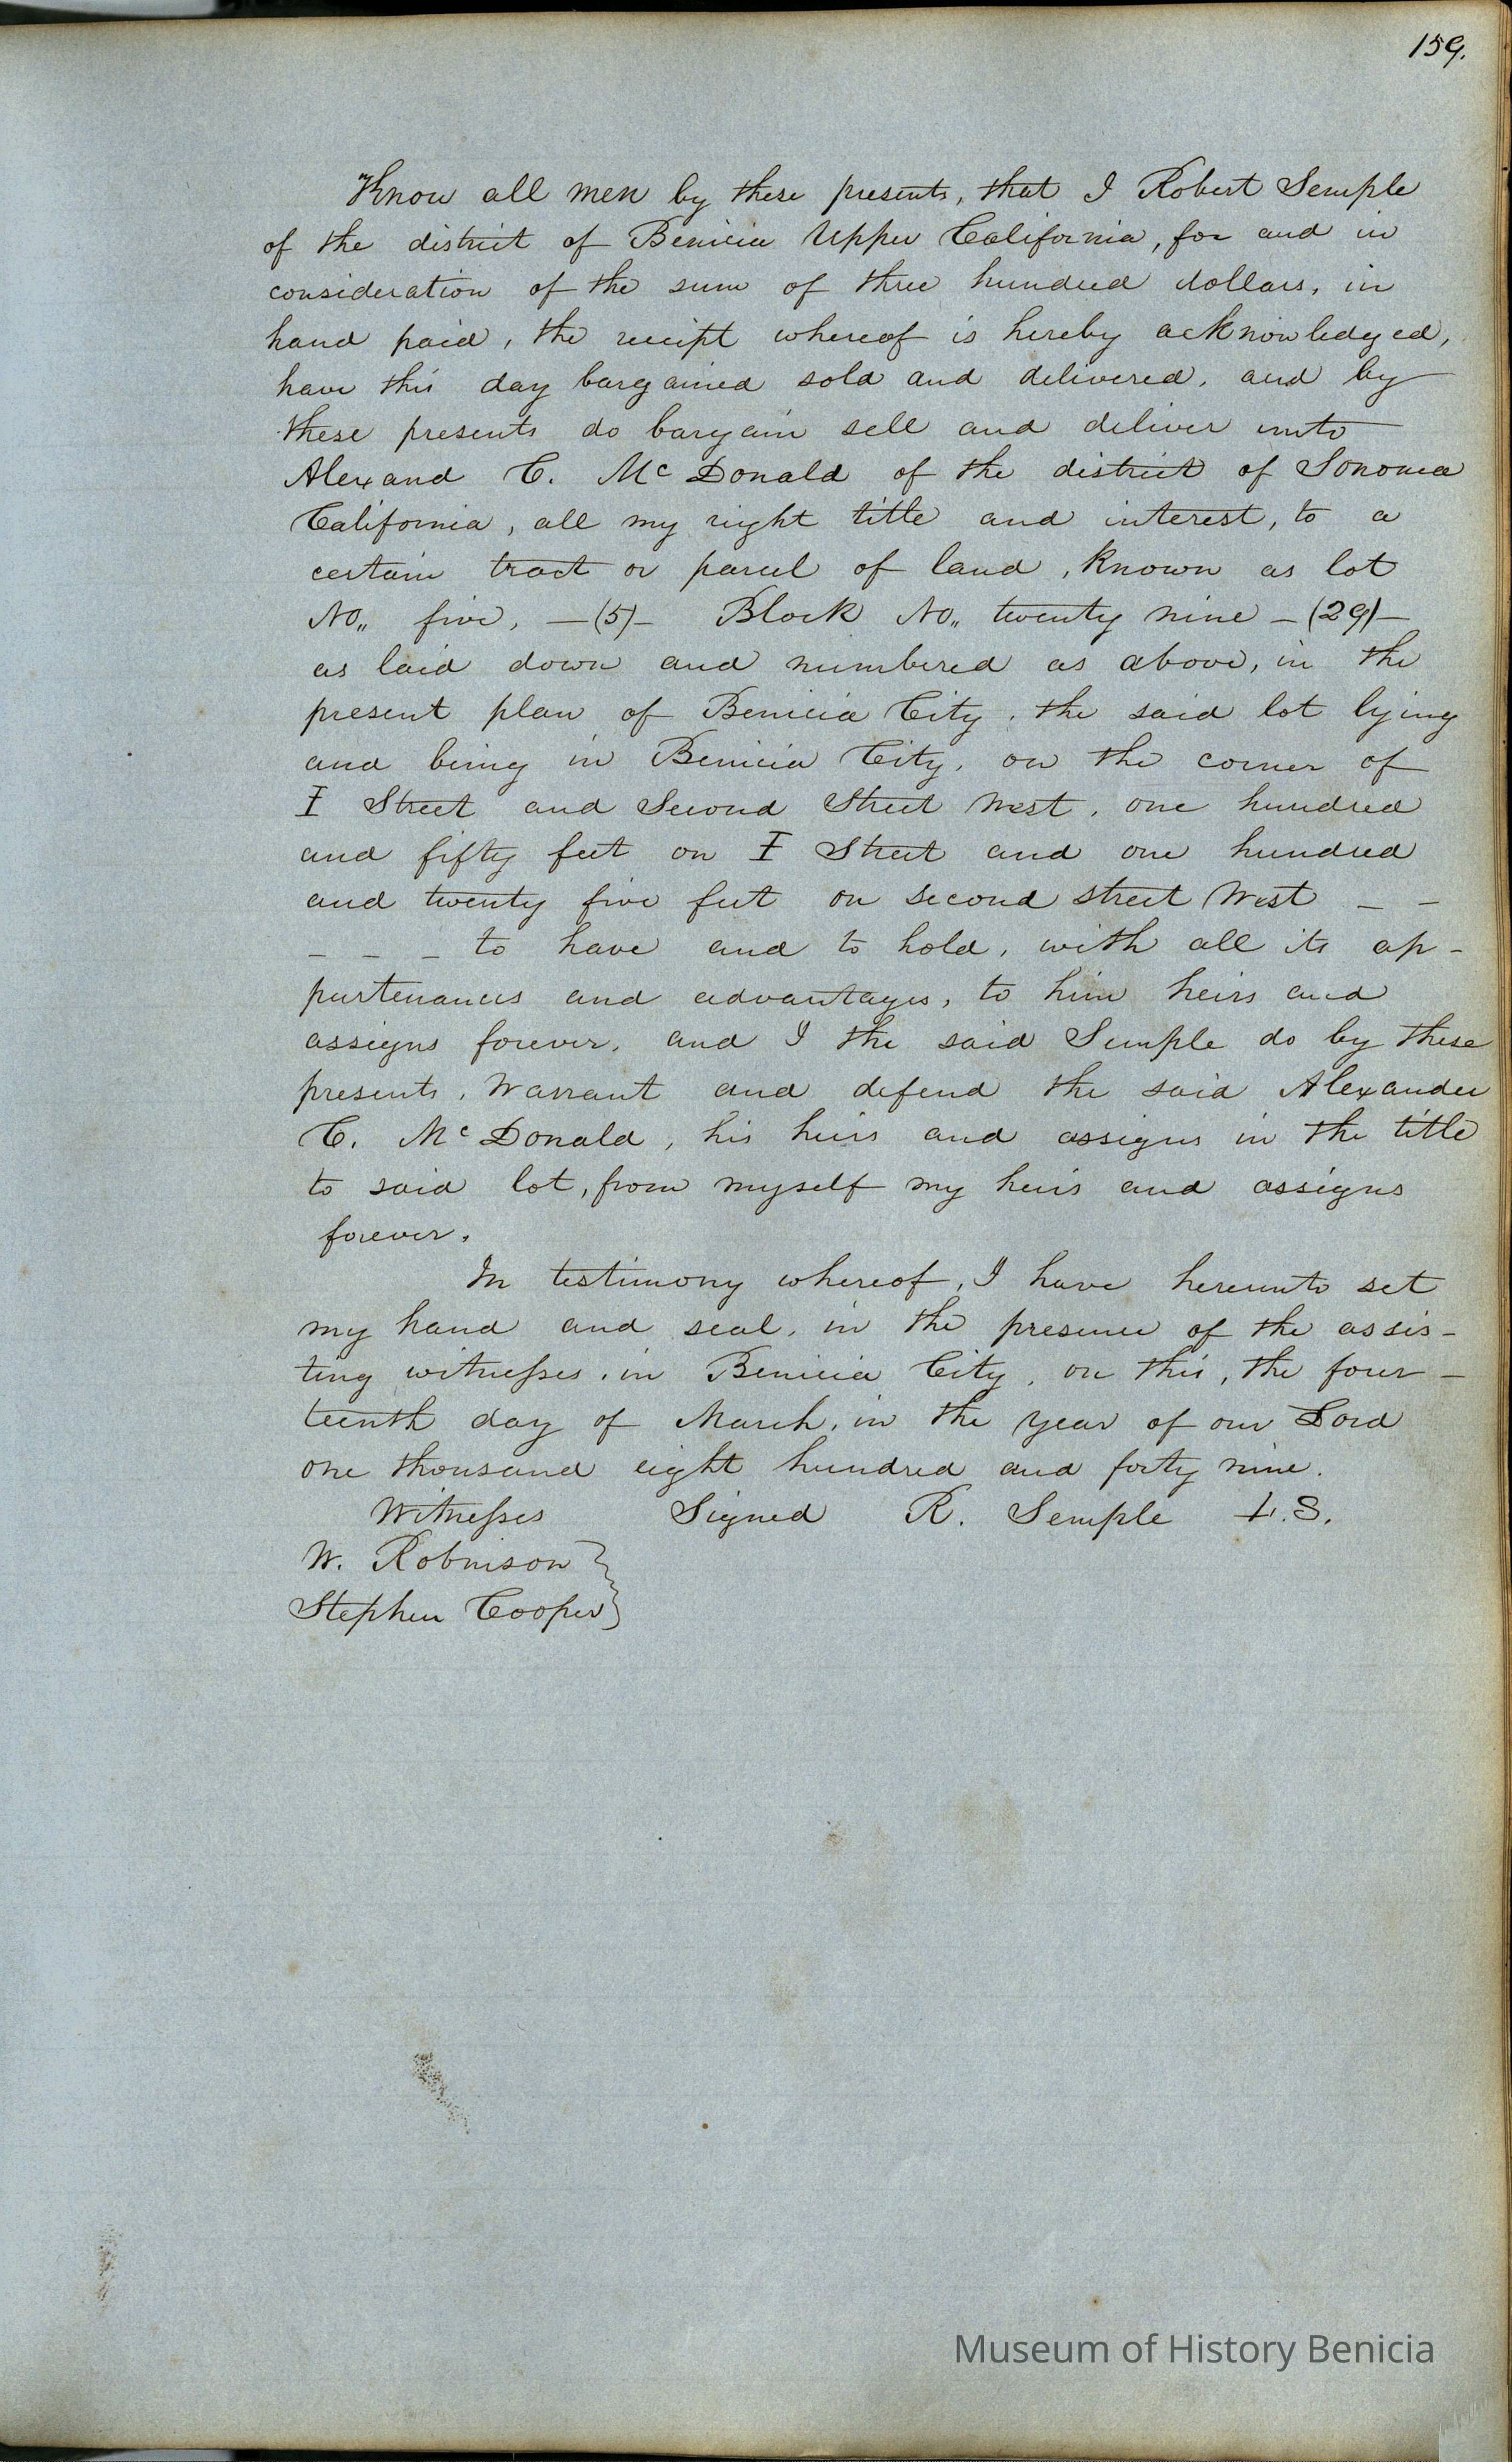 159.
Know all men by these presents, that I Robert Semple
of the district of Benicia Upper California, for and in
consideration of the sum of three hundred dollars, in
hand paid, the receipt whereof is hereby acknowledged,
have this day bargained sold and delivered, and by
these presents do bargain sell and deliver unto
Alexand C. Mc Donald of the district of Sonoma
California, all my right title and interest, to a
certain tract or parcel of land, known as lot
No,, five, —(5)— Block No,, twenty nine —(29)—
as laid down and numbered as above, in the
present plan of Benicia City, the said lot lying
and being in Benicia City, on the corner of
I Street and Second Street West, one hundred
and fifty feet on I Street and one hundred
and twenty five feet on second street West — —
— — — to have and to hold, with all its ap-
purtenances and advantages, to him heirs and
assigns forever, and I the said Semple do by these
presents, Warrant and defend the said Alexander
C. Mc Donald, his heirs and assigns in the title
to said lot, from myself my heirs and assigns
forever.
In testimony whereof, I have hereunto set
my hand and seal, in the presence of the assis-
ting witnesses, in Benicia City, on this, the four-
teenth day of March, in the year of our Lord
one thousand eight hundred and forty nine.
Witnesses Signed R. Semple L.S.
W. Robinson
Stephen Cooper
Museum of History Benicia